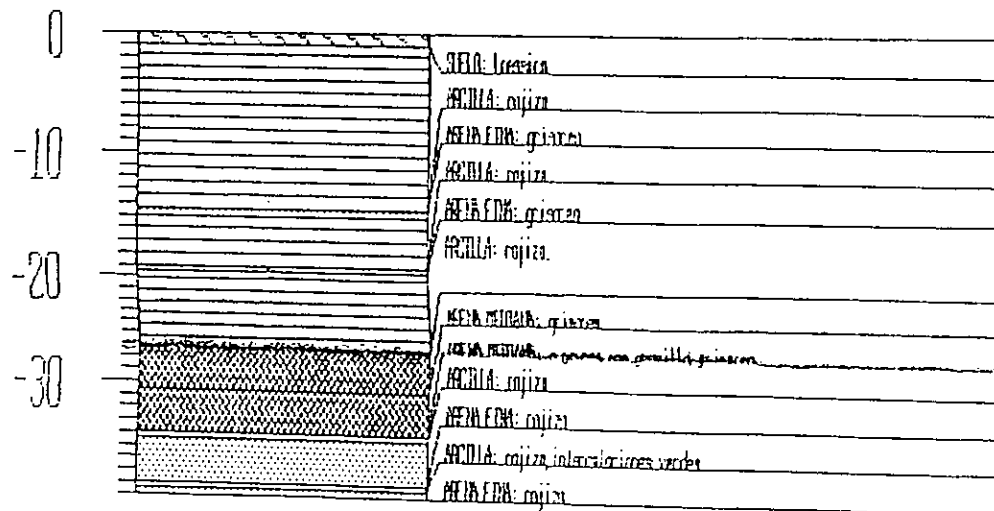 0
SUELO:
ARCILLA: rojiza
ARENA FINA: grisacea
-10
ARCILLA: rojiza
ARENA FINA: grisacea
ARCILLA: rojiza.
-20
ARENA MEDIANA: grisacea
ARENA MEDIANA a gruesa con gravilla grisacea
-30
ARCILLA: rojiza
ARENA FINA: rojiza
ARCILLA: rojiza, intercalaciones verdes
ARENA FINA: rojiza